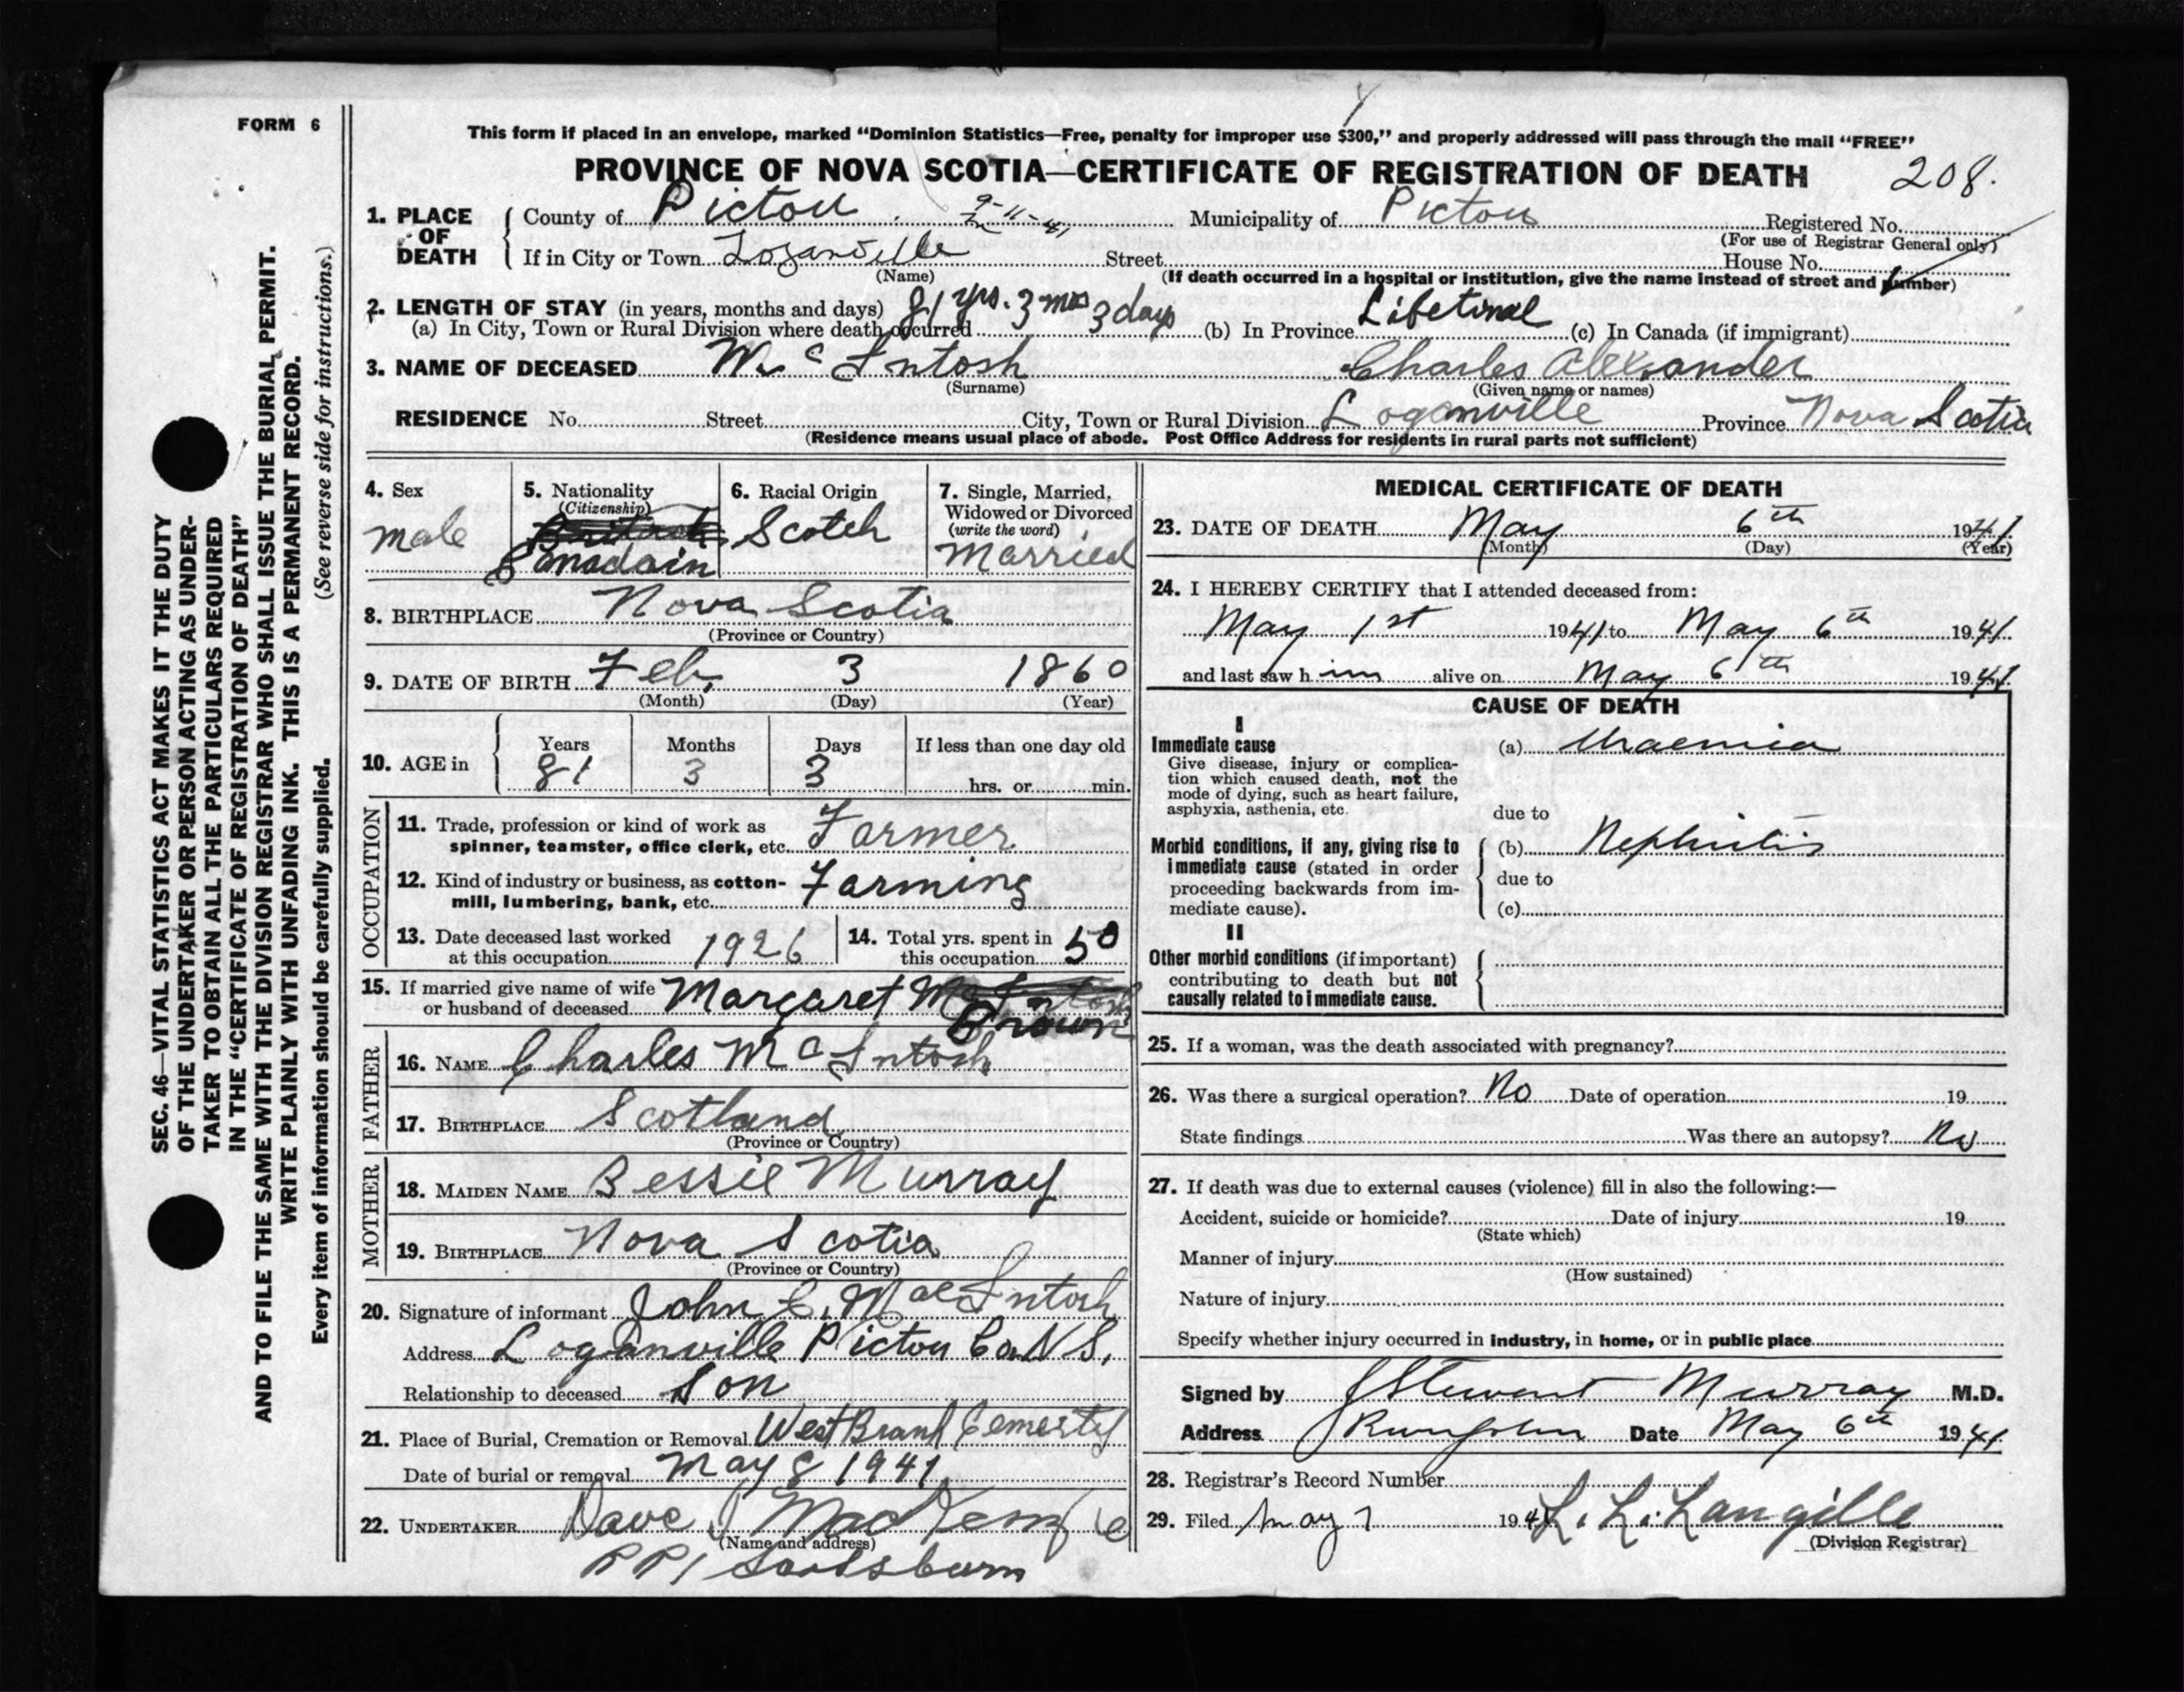 FORM 6
This form if placed in an envelope, marked "Dominion Statistics—Free, penalty for improper use $300," and properly addressed will pass through the mail "FREE"
PROVINCE OF NOVA SCOTIA—CERTIFICATE OF REGISTRATION OF DEATH 208.
1. PLACE OF DEATH
County of Pictou 9-11-41 Municipality of Pictou Registered No.
(For use of Registrar General only)
If in City or Town Loganville Street House No.
(Name) (If death occurred in a hospital or institution, give the name instead of street and number)
2. LENGTH OF STAY (in years, months and days) 81 yrs. 3 mos 3 days
(a) In City, Town or Rural Division where death occurred (b) In Province Lifetime (c) In Canada (if immigrant)
3. NAME OF DECEASED McIntosh Charles Alexander
(Surname) (Given name or names)
RESIDENCE No. Street City, Town or Rural Division Loganville Province Nova Scotia
(Residence means usual place of abode. Post Office Address for residents in rural parts not sufficient)
4. Sex
male
5. Nationality
(Citizenship)
British
Canadain
6. Racial Origin
Scotch
7. Single, Married, Widowed or Divorced
(write the word)
Married
8. BIRTHPLACE Nova Scotia
(Province or Country)
9. DATE OF BIRTH Feb. 3 1860
(Month) (Day) (Year)
10. AGE in
Years Months Days If less than one day old
81 3 3 hrs. or min.
OCCUPATION
11. Trade, profession or kind of work as
spinner, teamster, office clerk, etc. Farmer
12. Kind of industry or business, as cotton-
mill, lumbering, bank, etc. Farming
13. Date deceased last worked
at this occupation 1926
14. Total yrs. spent in
this occupation 50
15. If married give name of wife
or husband of deceased Margaret McIntosh
Brown
FATHER
16. NAME Charles McIntosh
17. BIRTHPLACE Scotland
(Province or Country)
MOTHER
18. MAIDEN NAME Bessie Murray
19. BIRTHPLACE Nova Scotia
(Province or Country)
20. Signature of informant John C. MacIntosh
Address Loganville Pictou Co. N S.
Relationship to deceased Son
21. Place of Burial, Cremation or Removal West Branh Cemerty
Date of burial or removal May 8 1941
22. UNDERTAKER Dave MacKenzie
(Name and address)
Scotsburn
MEDICAL CERTIFICATE OF DEATH
23. DATE OF DEATH May 6th 1941
(Month) (Day) (Year)
24. I HEREBY CERTIFY that I attended deceased from:
May 1st 1941 to May 6th 1941
and last saw him alive on May 6th 1941
CAUSE OF DEATH
I
Immediate cause
Give disease, injury or complica-
tion which caused death, not the
mode of dying, such as heart failure,
asphyxia, asthenia, etc.
(a) Uraemia
due to
Morbid conditions, if any, giving rise to
immediate cause (stated in order
proceeding backwards from im-
mediate cause).
(b) Nephritis
due to
(c)
II
Other morbid conditions (if important)
contributing to death but not
causally related to immediate cause.
25. If a woman, was the death associated with pregnancy?
26. Was there a surgical operation? No Date of operation 19
State findings Was there an autopsy? No
27. If death was due to external causes (violence) fill in also the following:—
Accident, suicide or homicide? Date of injury 19
(State which)
Manner of injury
(How sustained)
Nature of injury
Specify whether injury occurred in industry, in home, or in public place
Signed by J Stewart Murray M.D.
Address Date May 6th 1941
28. Registrar's Record Number
29. Filed May 7 194 L. L. Langille
(Division Registrar)
SEC. 46—VITAL STATISTICS ACT MAKES IT THE DUTY
OF THE UNDERTAKER OR PERSON ACTING AS UNDER-
TAKER TO OBTAIN ALL THE PARTICULARS REQUIRED
IN THE "CERTIFICATE OF REGISTRATION OF DEATH"
AND TO FILE THE SAME WITH THE DIVISION REGISTRAR WHO SHALL ISSUE THE BURIAL PERMIT.
WRITE PLAINLY WITH UNFADING INK. THIS IS A PERMANENT RECORD.
Every item of information should be carefully supplied. (See reverse side for instructions.)